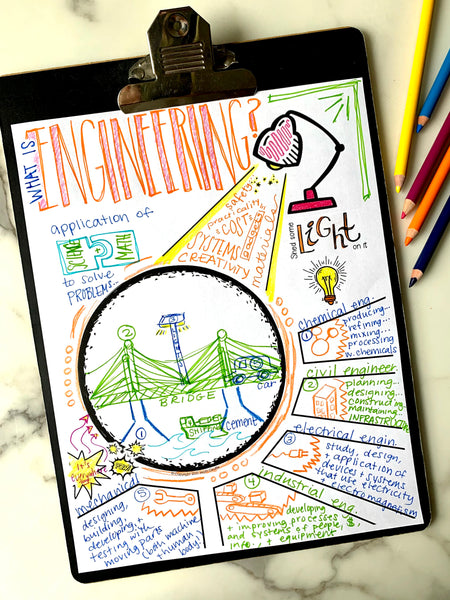 WHAT IS
ENGINEERING?
application of
SCIENCE
MATH
to solve
PROBLEMS...
safety
practicality
COST
SYSTEMS
CREATIVITY
materials
Shed some
Light
on it
chemical eng.
① producing...
refining...
mixing...
processing
w. chemicals
civil engineer
② planning...
designing...
constructing
maintaining
INFRASTRUCTURE
electrical engin.
③ study, design,
+ application of
devices + systems
that use electricity
+ electromagnetism
industrial eng.
④ developing
+ improving processes
and systems of people, $
info., + equipment
mechanical
⑤
designing,
building,
developing, +
testing with
moving parts
(both machine
+ human
body!)
②
③
BRIDGE
car
①
cement
Ship
It's
everywhere